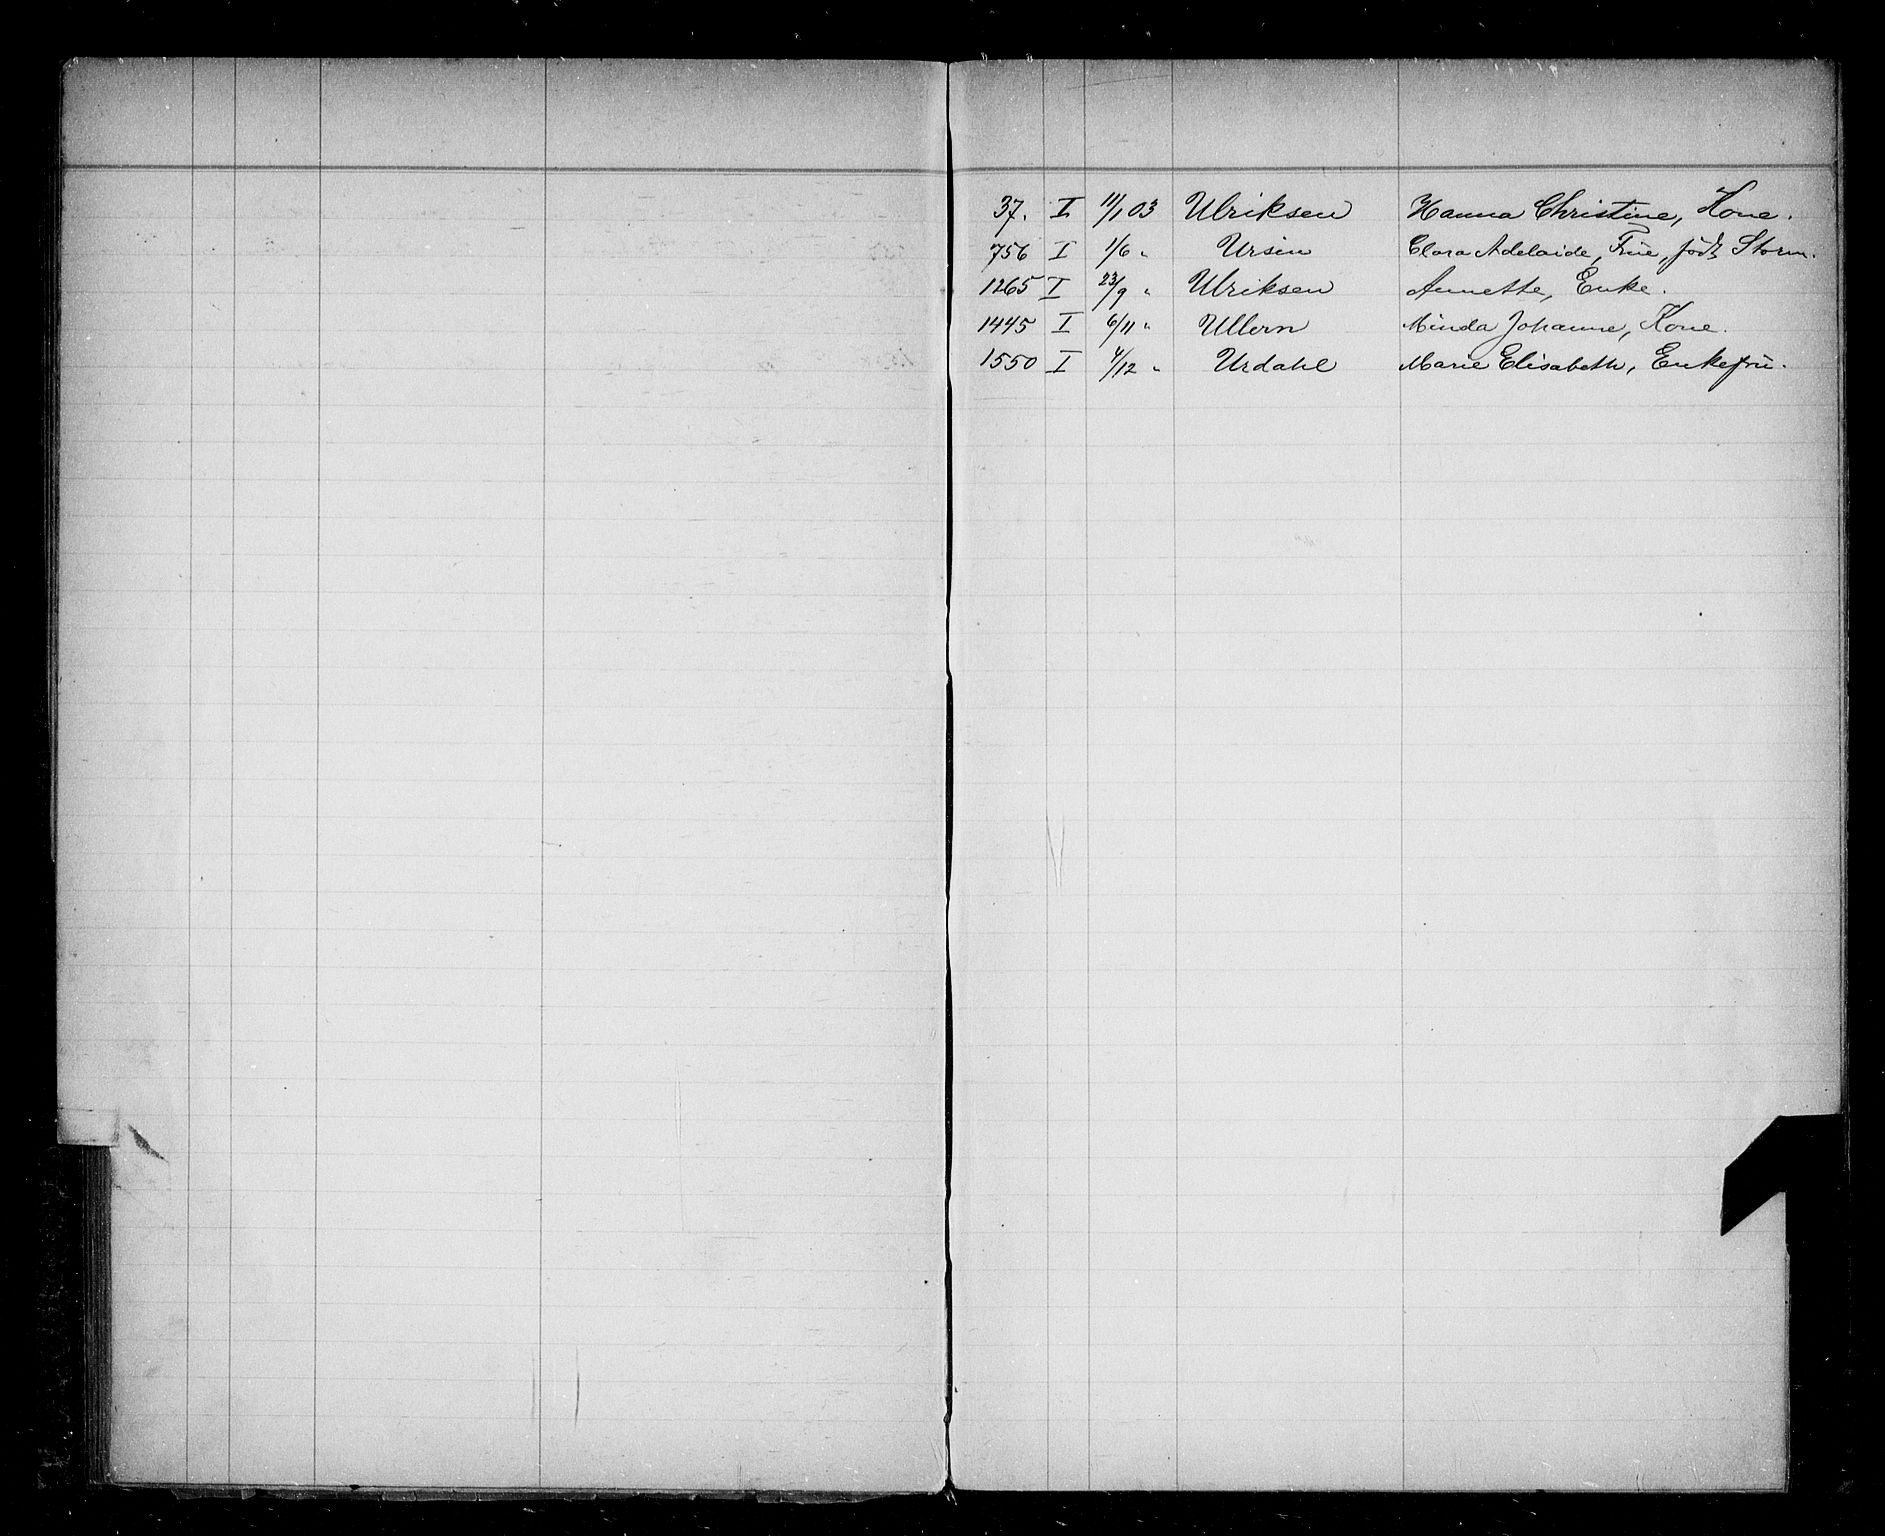 37. I 11/1 03 Ulriksen Hanna Christine, Kone.
756 I 1/6 " Ursin Clara Adelaide, Frue, født Storm.
1265 I 23/9 " Ulriksen Annette, Enke.
1445 I 6/11 " Ullern Minda Johanne, Kone.
1550 I 4/12 " Urdahl Marie Elisabeth, Enkefru.